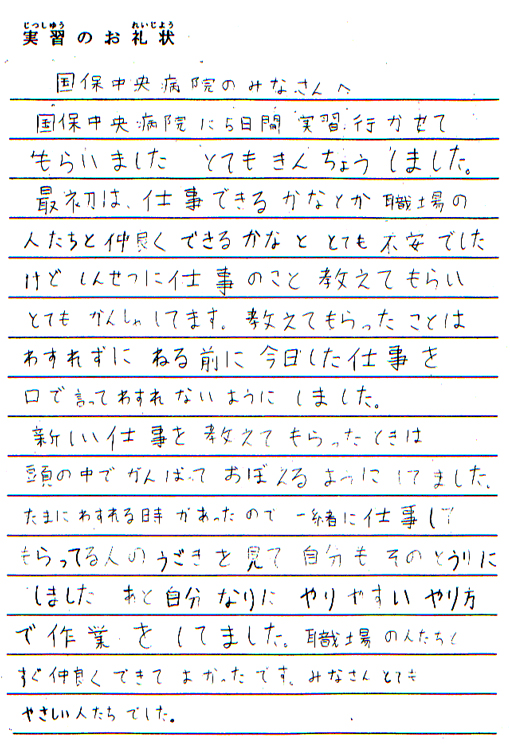 じつしゅう れいじょう
実習のお礼状
国保中央病院のみなさんへ
国保中央病院に5日間実習行かせて
もらいました とてもきんちょうしました。
最初は、仕事できるかなとか職場の
人たちと仲良くできるかなととても不安でした
けどしんせつに仕事のこと教えてもらい
とてもかんしゃしてます。教えてもらったことは
わすれずにねる前に今日した仕事を
口で言ってわすれないようにしました。
新しい仕事を教えてもらったときは
頭の中でがんばっておぼえるようにしてました、
たまにわすれる時があったので一緒に仕事して
もらってる人のうごきを見て自分もそのとうりに
しました あと自分なりにやりやすいやり方
で作業をしてました。職場の人たちと
すぐ仲良くできてよかったです、みなさんとても
やさしい人たちでした。